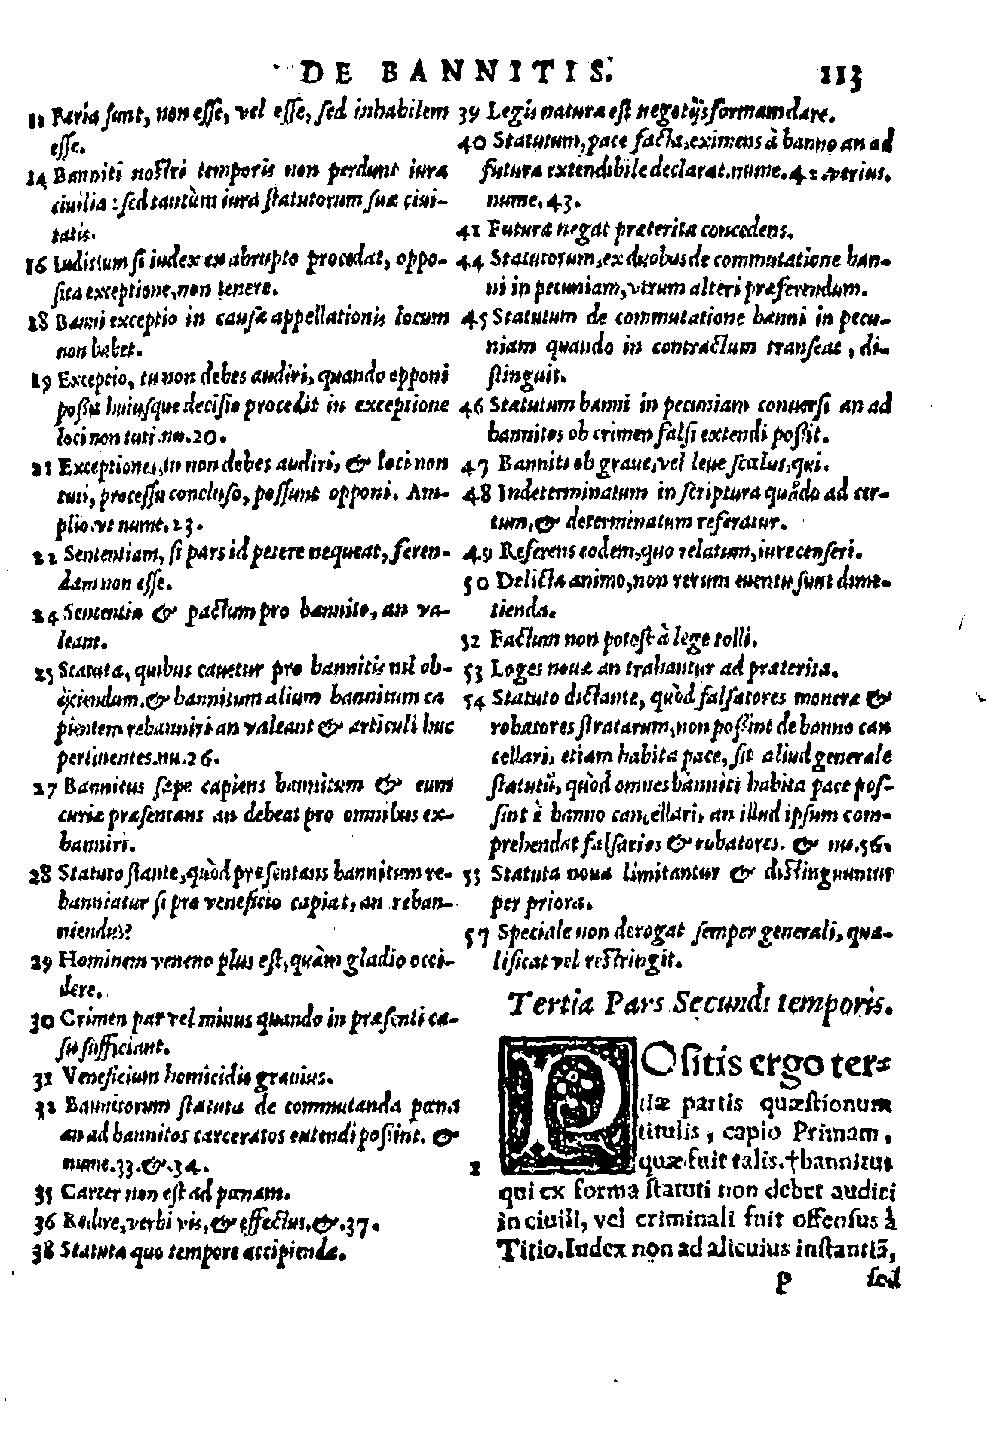 DE BANNITIS. 113
11 Paria sunt, non esse, vel esse, sed inhabilem
esse.
14 Banniti nostri temporis non perdunt iura
ciuilia: sed tantùm iura statutorum suæ ciui-
tatis.
16 Iudicium si iudex ex abrupto procedat, oppo-
sita exceptione, non tenere.
18 Banni exceptio in causa appellationis locum
non habet.
19 Exceptio, tu non debes audiri, quando opponi
possit huiusque decisio procedit in exceptione
loci non tuti. nu.20.
21 Exceptiones, tu non debes audiri, & loci non
tuti, processu concluso, possunt opponi. Am-
plio. vt nume.23.
22 Sententiam, si pars id petere nequeat, feren-
dam non esse.
24 Sententia & pactum pro bannito, an va-
leant.
25 Statuta, quibus cauetur pro bannitis nil ob-
ijciendum. & bannitum alium bannitum ca
pientem rebanniri an valeant & articuli huc
pertinentes. nu.26.
27 Bannitus sæpe capiens bannitum & eum
curiæ præsentans an debeat pro omnibus ex-
banniri.
28 Statuto stante, quòd præsentans bannitum re-
banniatur si pro veneficio capiat, an reban-
niendus?
29 Hominem veneno plus est, quàm gladio occi-
dere.
30 Crimen par vel minus quando in præsenti ca-
su sufficiant.
31 Veneficium homicidio grauius.
32 Bannitorum statuta de commutanda pœna
an ad bannitos carceratos extendi possint. &
nume.33.&.34.
35 Carcer non est ad pœnam.
36 Redire, verbi vis, & effectus, &.37.
38 Statuta quo tempore accipienda.
39 Legis natura est negotijs formam dare.
40 Statutum, pace facta, eximens à banno an ad
futura extendibile declarat. nume.42 verius.
nume.43.
41 Futura negat præterita concedens.
44 Statutorum, ex duobus de commutatione ban-
ni in pecuniam, vtrum alteri præferendum.
45 Statutum de commutatione banni in pecu-
niam quando in contractum transeat, di-
stinguit.
46 Statutum banni in pecuniam conuersi an ad
bannitos ob crimen falsi extendi possit.
47 Banniti ob graue, vel leue scelus, qui.
48 Indeterminatum in scriptura quādo ad cer-
tum, & determinatum referatur.
49 Referens eodem, quo relatum, iure censeri.
50 Delicta animo, non rerum euentu sunt dime-
tienda.
52 Factum non potest à lege tolli.
53 Leges nouæ an trahantur ad præterita.
54 Statuto dictante, quòd falsatores monetæ &
robatores stratarum, non possint de banno can
cellari, etiam habita pace, sit aliud generale
statutū, quòd omnes banniti habita pace pos-
sint è banno cancellari, an illud ipsum com-
prehendat falsarios & robatores. & nu.56.
55 Statuta noua limitantur & distinguuntur
per priora.
57 Speciale non derogat semper generali, qua-
lificat vel restringit.
Tertia Pars Secundi temporis.
POsitis ergo ter-
tiæ partis quæstionum
titulis, capio Primam,
1 quæ fuit talis. †bannitus
qui ex forma statuti non debet audiri
in ciuili, vel criminali fuit offensus à
Titio. Iudex non ad alicuius instantiā,
P sed